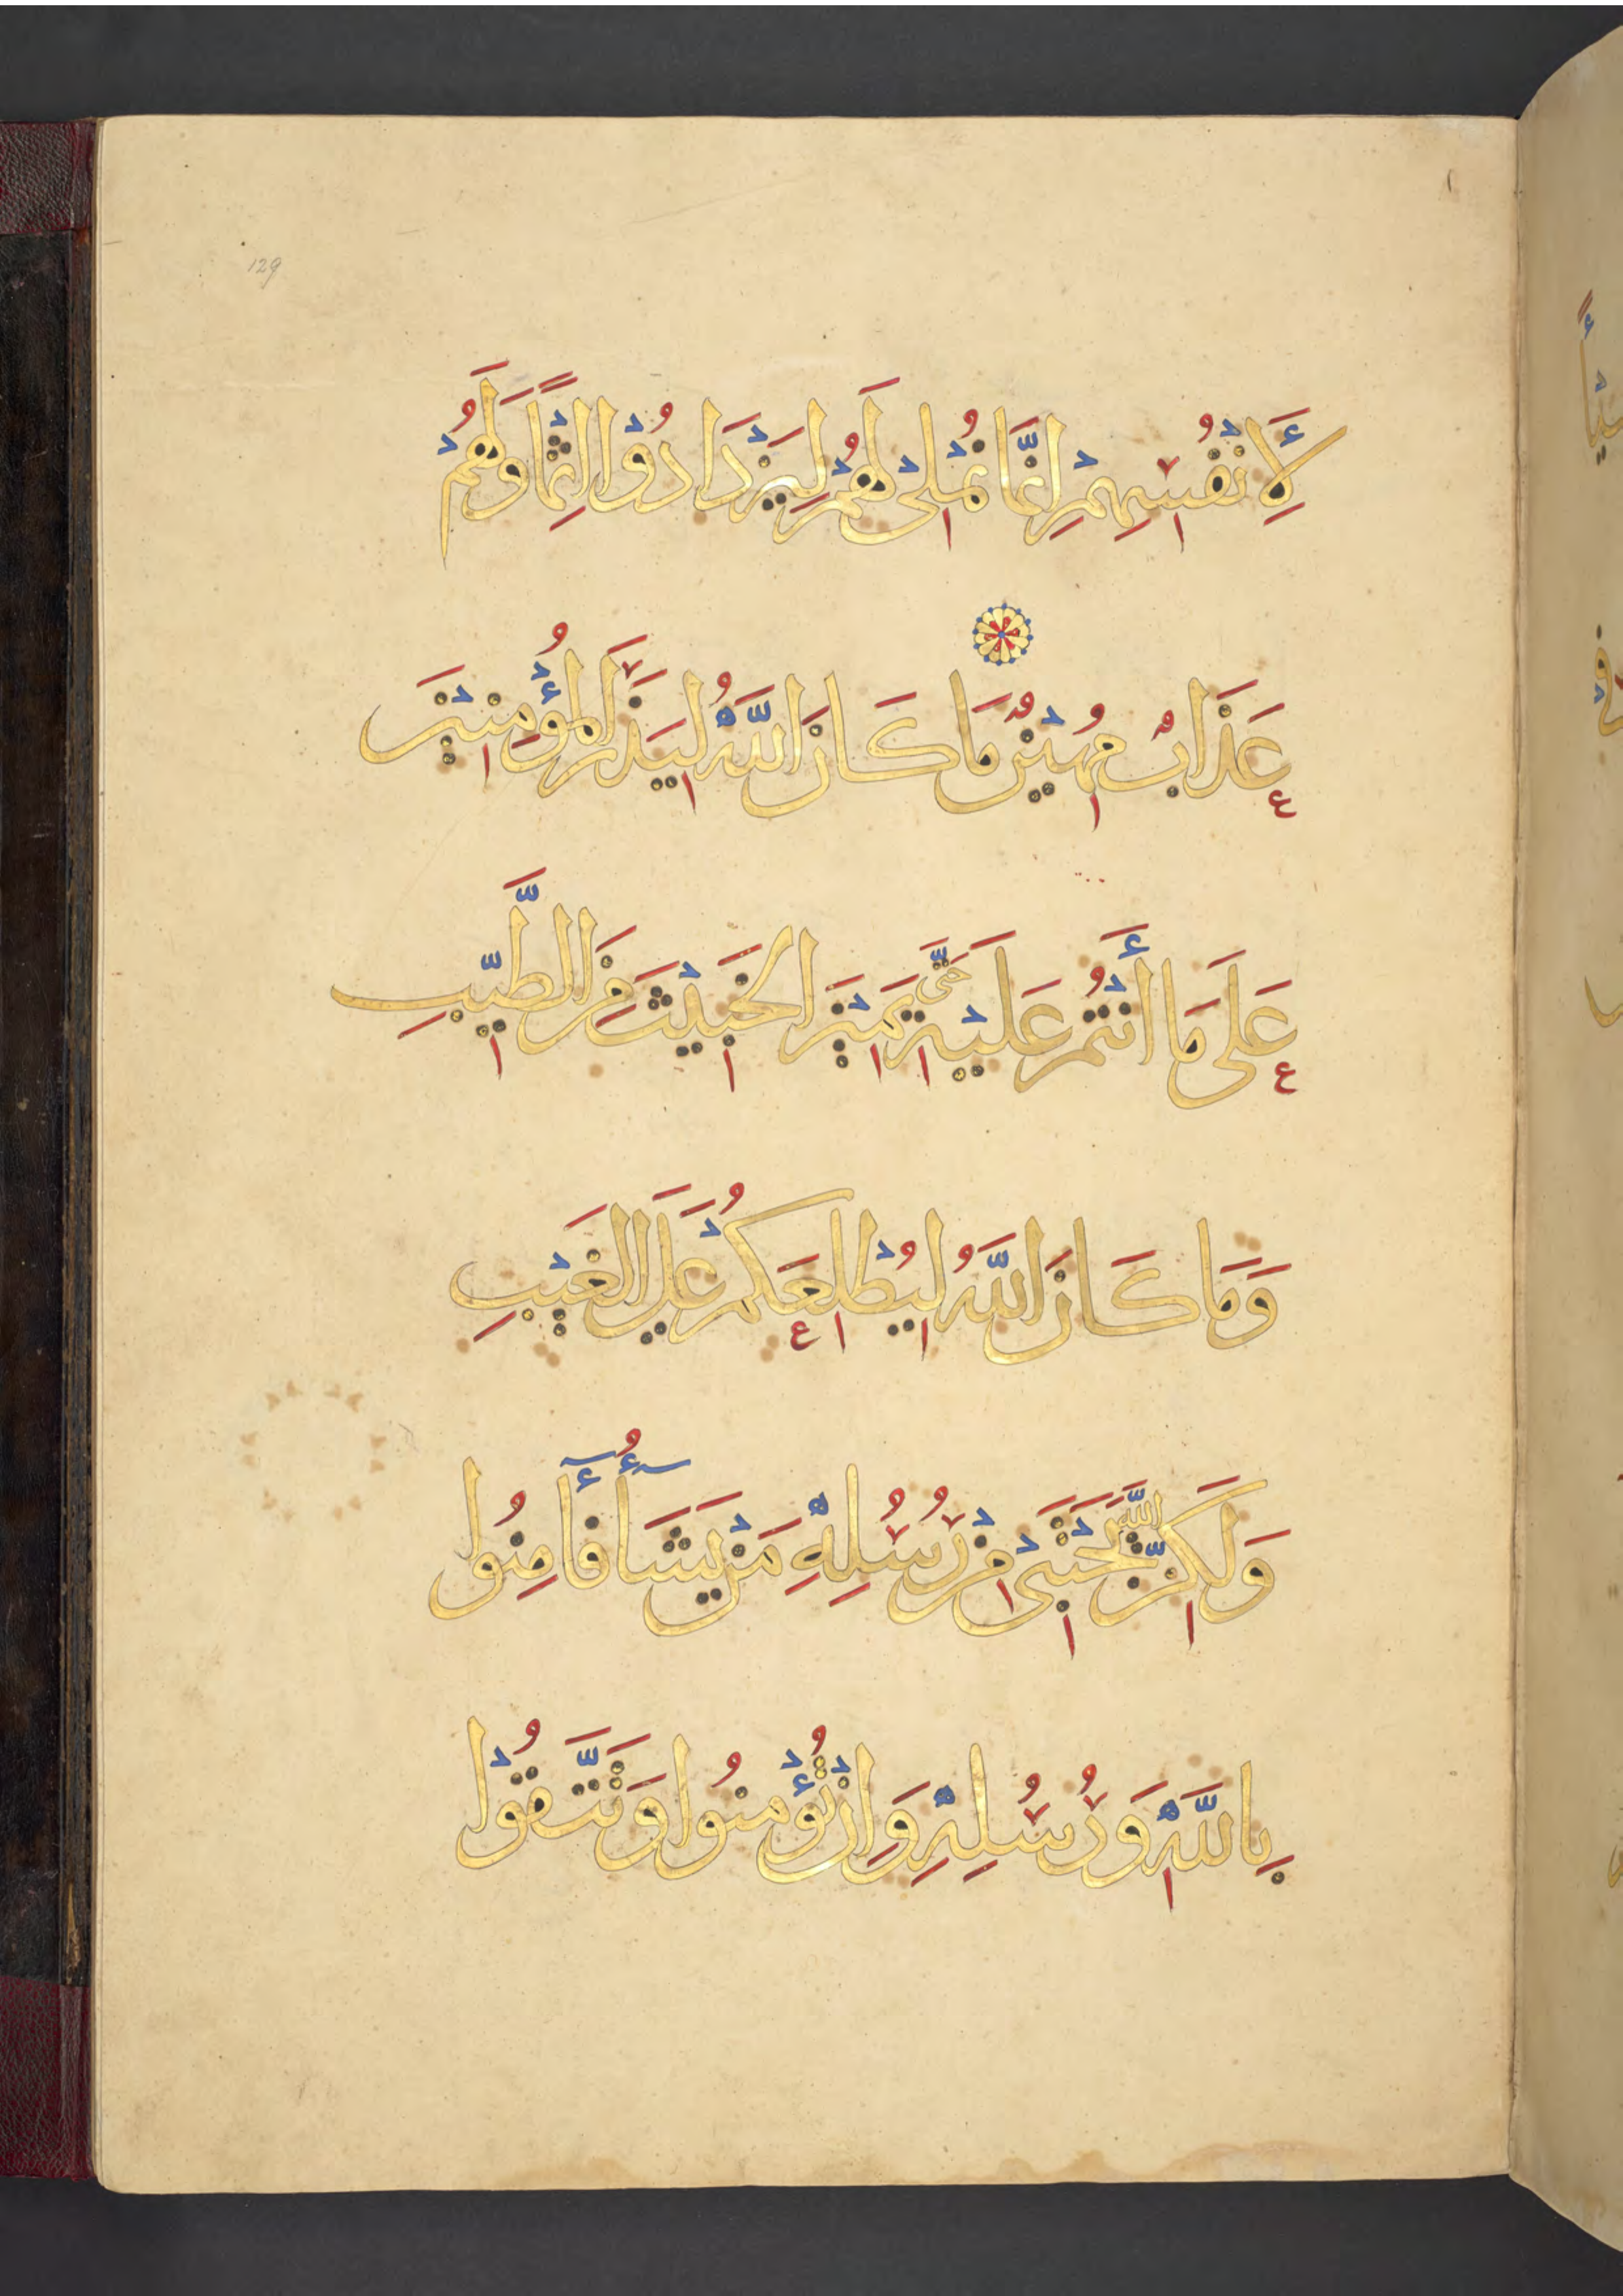 129
لِأَنْفُسِهِمْ اِنَّمَا نُمْلِى لَهُمْ لِيَزْدَادُوْا اِثْمًا وَلَهُمْ
عَذَابٌ مُهِيْنٌ مَا كَانَ اللّٰهُ لِيَذَرَ الْمُؤْمِنِيْنَ
عَلَى مَا أَنْتُمْ عَلَيْهِ حَتَّى يَمِيْزَ الْخَبِيْثَ مِنَ الطَّيِّبِ
وَمَا كَانَ اللّٰهُ لِيُطْلِعَكُمْ عَلَى الْغَيْبِ
وَلَكِنَّ اللّٰهَ يَجْتَبِىْ مِنْ رُسُلِهِ مَنْ يَشَآءُ فَأٓمِنُوا
بِاللّٰهِ وَرُسُلِهِ وَاِنْ تُؤْمِنُوا وَتَتَّقُوْا